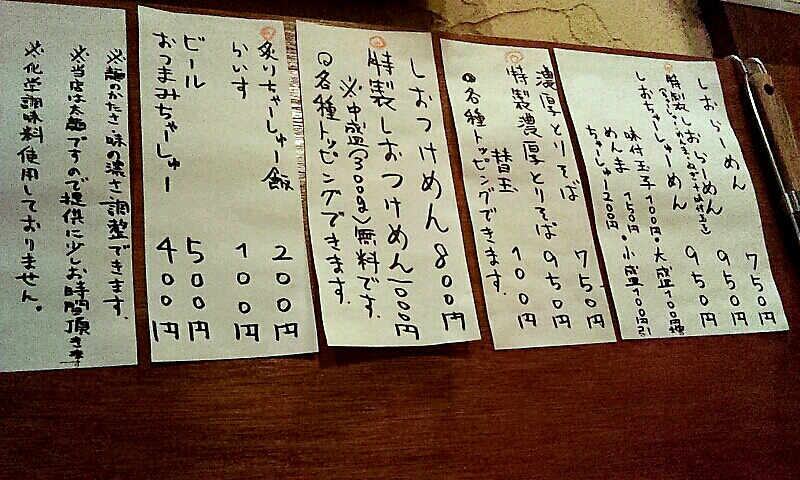 しおらーめん 750円
特製しおらーめん 950円
しおちゃーしゅーめん 950円
味付玉子 100円・大盛100円増
めんま 150円・小盛100円引
ちゃーしゅー200円
濃厚とりそば 750円
特製濃厚とりそば 950円
替玉 100円
◎各種トッピングできます。
しおつけめん 800円
特製しおつけめん 1000円
※中盛(300g)無料です。
◎各種トッピングできます。
炙りちゃーしゅー飯 200円
らいす 100円
ビール 500円
おつまみちゃーしゅー 400円
※麺のかたさ・味の濃さ調整できます。
※当店は太麺ですので提供に少しお時間頂きます
※化学調味料使用しておりません。